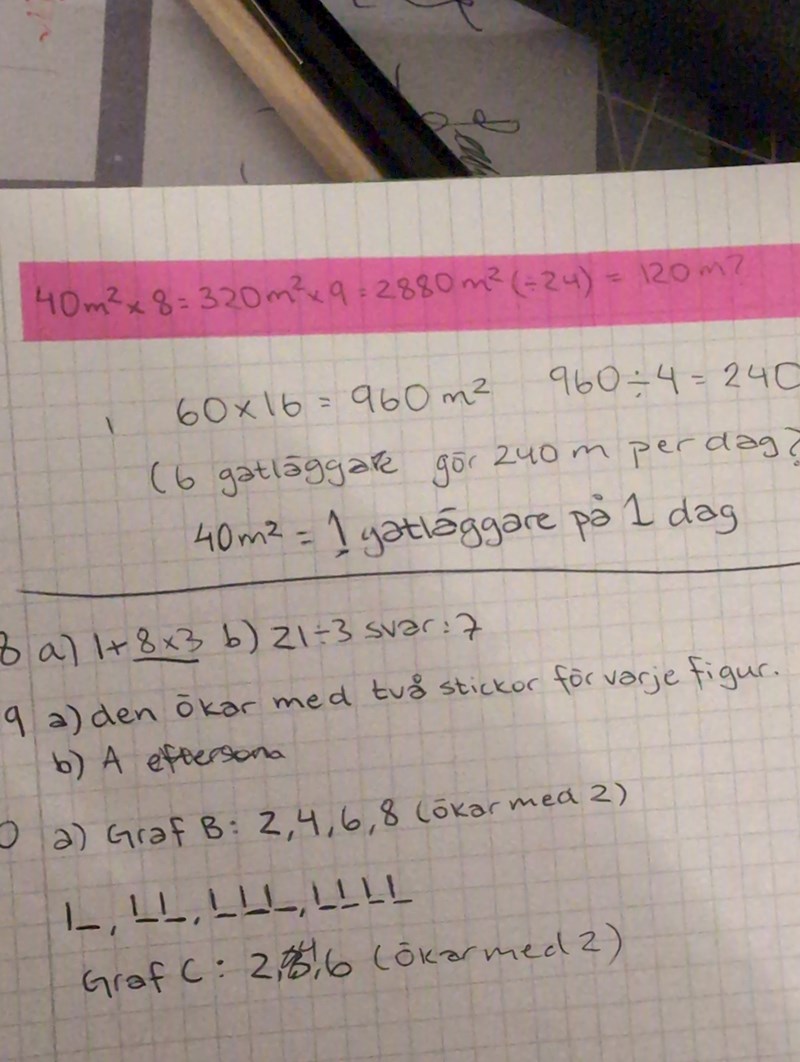 40m² x 8 = 320m² x 9 = 2880m² (÷24) = 120m?
60x16 = 960m² 960÷4 = 240
(6 gatläggare gör 240 m per dag?
40m² = 1 gatläggare på 1 dag
8 a) 1+8x3 b) 21÷3 svar: 7
9 a) den ökar med två stickor för varje figur.
b) A eftersom
a) Graf B: 2,4,6,8 (ökar med 2)
Graf C: 2, 6 (ökar med 2)